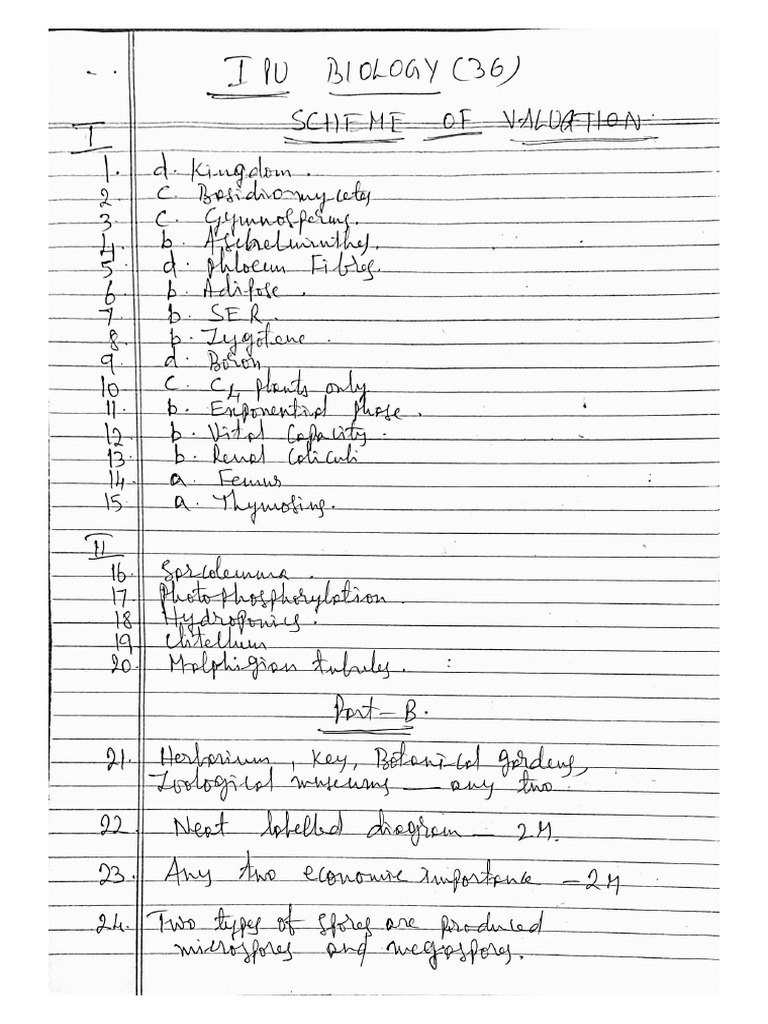 I PU BIOLOGY (36)
SCHEME OF VALUATION
I
1. d. Kingdom.
2 c. Basidiomycetes
3. c. Gymnosperms.
4. b. Aschelminthes.
5 d. Phloem Fibres.
6. b. Adipose.
7. b. SER.
8. b. Zygotene.
9. d. Boron
10 c. C4 plants only
11. b. Exponential phase.
12 b. Vital Capacity.
13. b. Renal Calculi
14. a. Femur
15 a. Thymosins.
II
16 Sarcolemma.
17. Photophosphorylation.
18 Hydroponics.
19 Clitellum
20. Malphigian tubules.
Part-B.
21. Herbarium, Key, Botanical gardens,
Zoological museums — any two
22 Neat labelled diagram — 2M.
23. Any two economic importance — 2M
24. Two types of spores are produced
microspores and megaspores.